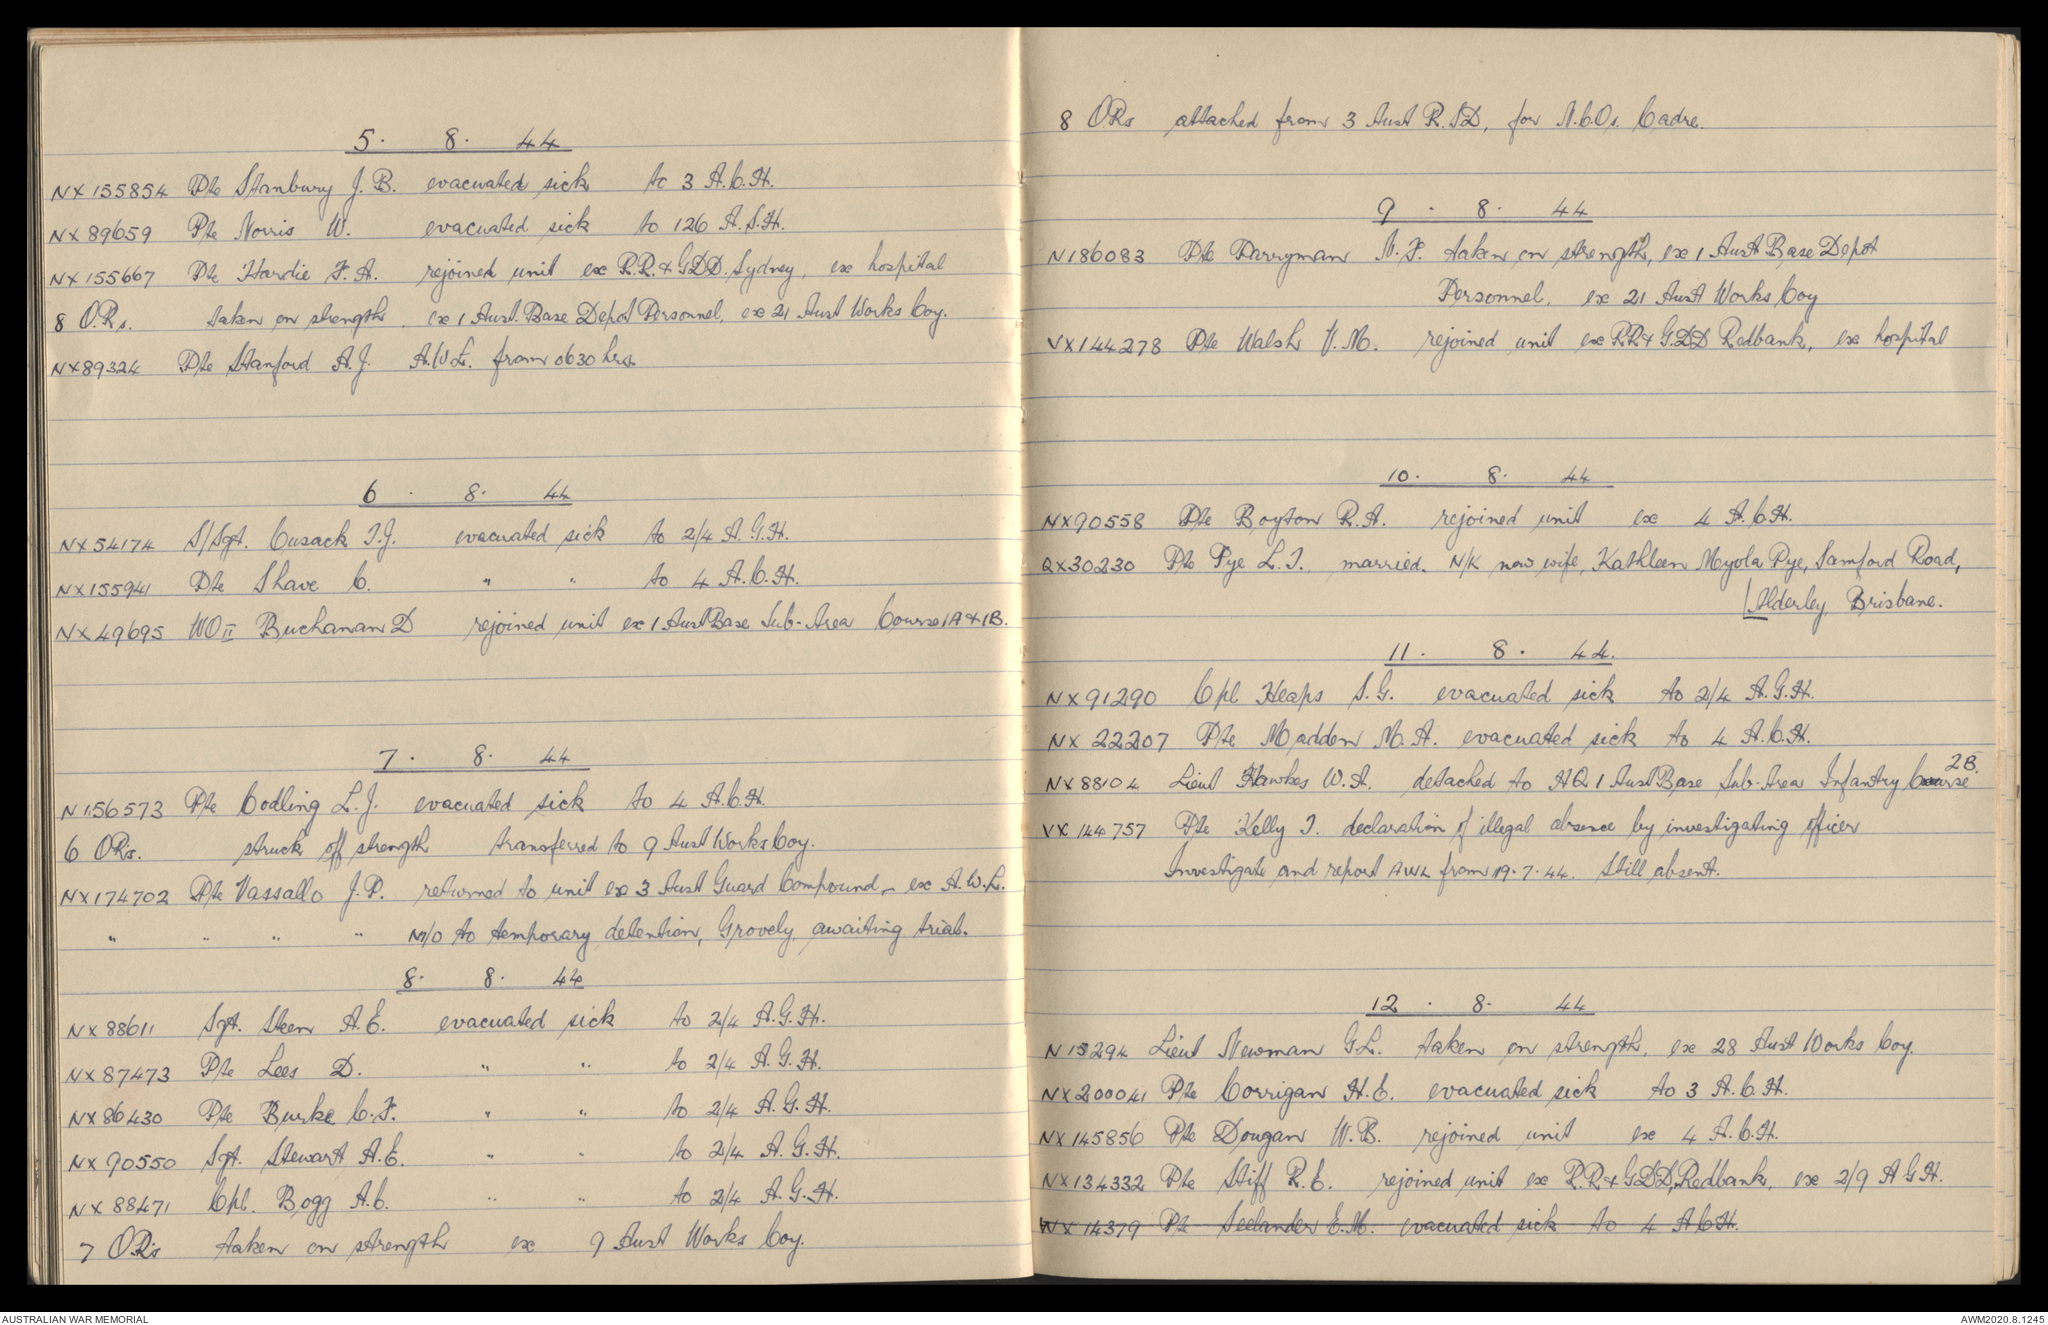 5. 8. 44
NX155854 Pte Stanbury J. B. evacuated sick to 3 A.C.H.
NX89659 Pte Norris W. evacuated sick to 126 A.S.H.
NX155667 Pte Hardie F. A. rejoined unit ex R.R. & G.D.D. Sydney, ex hospital
8 O.Rs. taken on strength ex 1 Aust. Base Depot Personnel, ex 21 Aust Works Coy.
NX89324 Pte Stanford A. J. A.W.L. from 0630 hrs.
6. 8. 44
NX54174 S/Sgt. Cusack T.J. evacuated sick to 2/4 A.G.H.
NX155941 Pte Shave C. " " to 4 A.C.H.
NX49695 WO II Buchanan D rejoined unit ex 1 Aust Base Sub-Area Course 1A & 1B.
7. 8. 44
N156573 Pte Codling L. J. evacuated sick to 4 A.C.H.
6 ORs. struck off strength transferred to 9 Aust Works Coy.
NX174702 Pte Vassallo J. P. returned to unit ex 3 Aust Guard Compound - ex A.W.L.
" " " " M/O to temporary detention, Grovely, awaiting trial.
8. 8. 44
NX88611 Sgt. Steen A. E. evacuated sick to 2/4 A.G.H.
NX87473 Pte Lees D. " " to 2/4 A.G.H.
NX86430 Pte Burke C. F. " " to 2/4 A.G.H.
NX90550 Sgt. Stewart A. E. " " to 2/4 A.G.H.
NX88471 Cpl. Bogg A. C. " " to 2/4 A.G.H.
7 ORs taken on strength ex 9 Aust Works Coy.
8 O.Rs attached from 3 Aust R.S.D, for N.C.Os. Cadre.
9. 8. 44
N186083 Pte Parryman N. F. taken on strength, ex 1 Aust Base Depot
Personnel, ex 21 Aust Works Coy
VX144278 Pte Walsh V. M. rejoined unit ex R.R & G.D.D Redbank, ex hospital
10. 8. 44
NX90558 Pte Boyton R. A. rejoined unit ex 4 A.C.H.
QX30230 Pte Pye L. T. married. N/K now wife, Kathleen Myola Pye, Samford Road,
Alderley, Brisbane.
11. 8. 44.
NX91290 Cpl Heaps S. G. evacuated sick to 2/4 A.G.H.
NX22207 Pte Madden M. A. evacuated sick to 4 A.C.H.
28.
NX88104 Lieut Hawkes W. A. detached to HQ 1 Aust Base Sub-Area Infantry Course
VX144757 Pte Kelly T. declaration of illegal absence by investigating officer
Investigate and report AWL from 19.7.44. Still absent.
12. 8. 44
N15294 Lieut Newman G. L. taken on strength, ex 28 Aust Works Coy.
NX200041 Pte Corrigan H. E. evacuated sick to 3 A.C.H.
NX145856 Pte Dougan W. B. rejoined unit ex 4 A.C.H.
NX134332 Pte Stiff R. E. rejoined unit ex R.R & G.D.D, Redbank, ex 2/9 A G H.
WX14379 Pte Seelander E. M. evacuated sick to 4 A C H.
AUSTRALIAN WAR MEMORIAL
AWM2020.8.1245